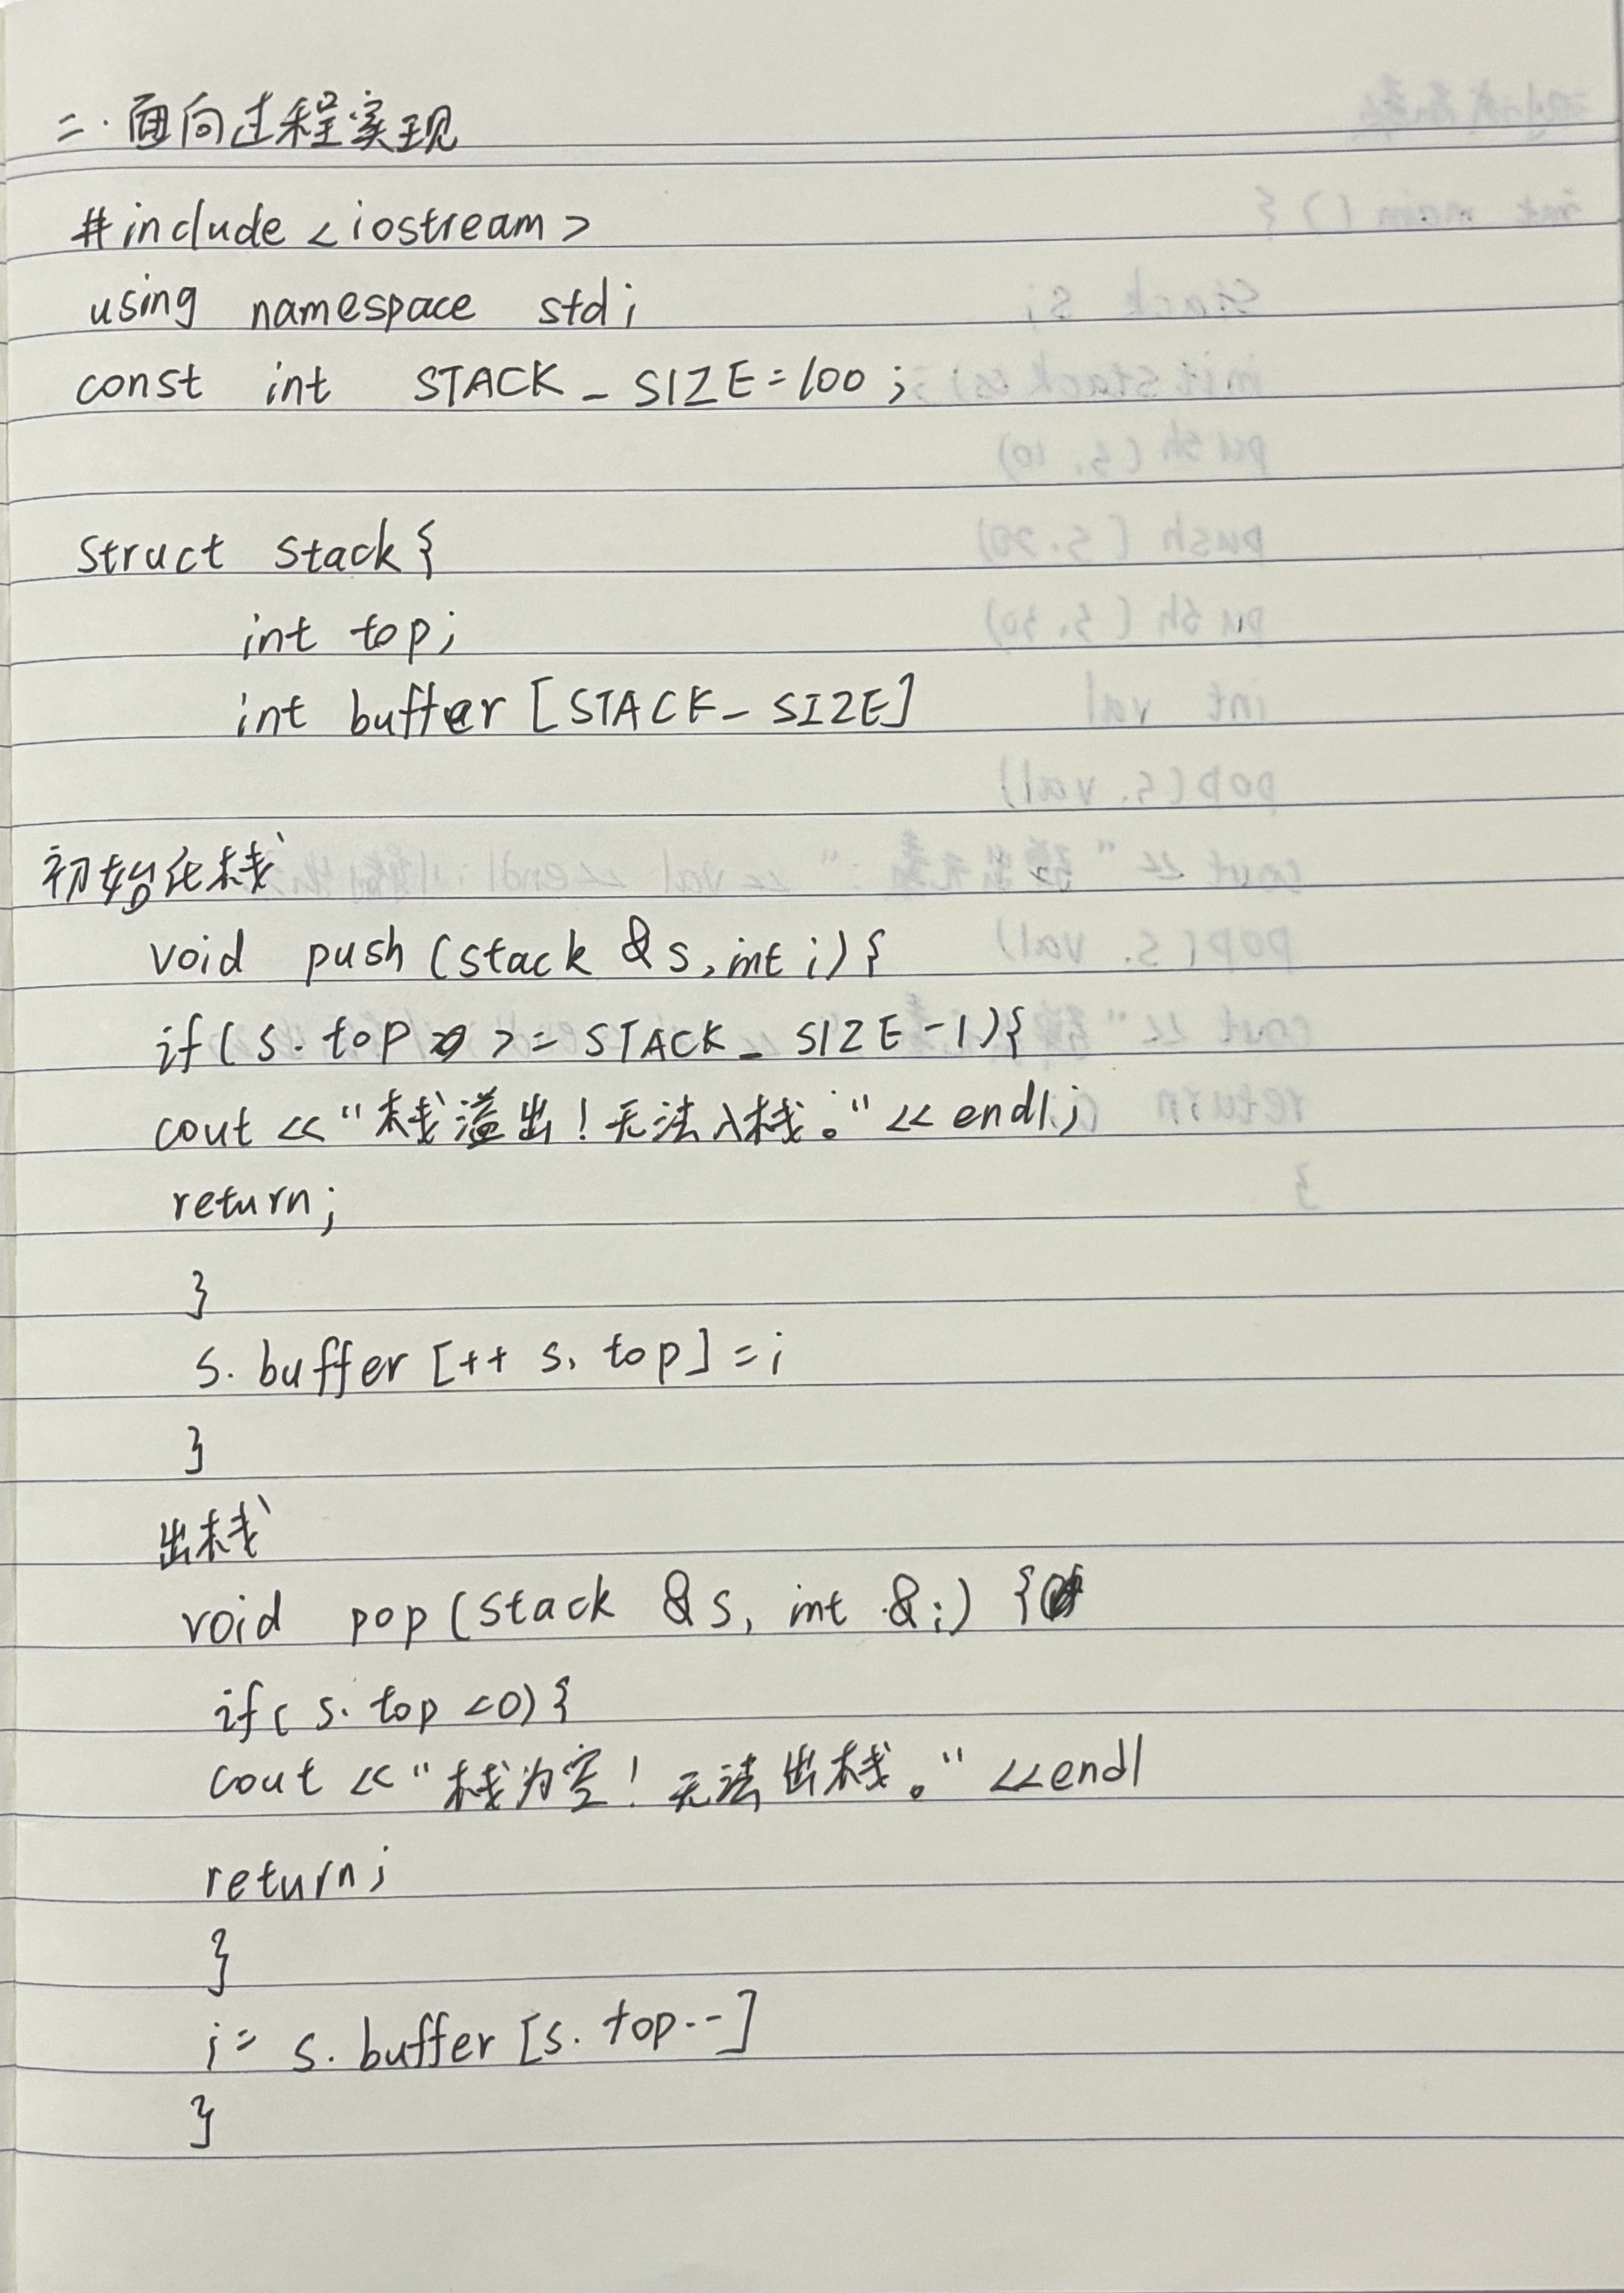 二.面向过程实现
#include <iostream>
using namespace std;
const int STACK_SIZE=100;
struct stack{
int top;
int buffer [STACK_SIZE]
初始化栈
void push (stack &s,int i){
if(s.top >= STACK_SIZE-1){
cout <<"栈溢出!无法入栈。"<< endl;
return;
}
s.buffer [++ s.top] =i
}
出栈
void pop (stack &s, int &i) {
if( s.top <0){
cout <<"栈为空!无法出栈。" <<endl
return;
}
i= s.buffer [s.top--]
}